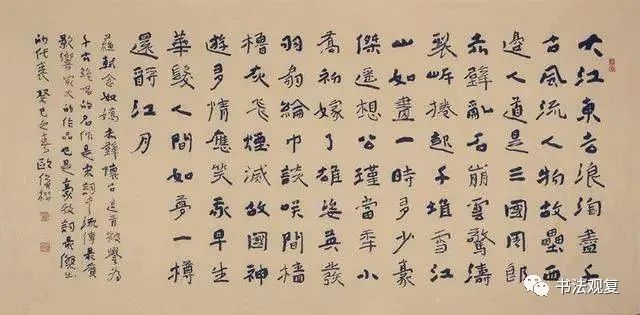 大江東去浪淘盡千
古風流人物故壘西
邊人道是三國周郎
赤壁亂石崩雲驚濤
裂岸捲起千堆雪江
山如畫一時多少豪
傑遥想公瑾當年小
喬初嫁了雄姿英發
羽扇綸巾談咲間檣
櫓灰飛煙滅故國神
遊多情應笑我早生
華髮人間如夢一樽
還酹江月
蘇軾念奴嬌赤壁懷古這首被譽為
千古絶唱的名作是宋詞中流傳最廣
影響最大的作品也是豪放詞最傑出
的代表 癸巳之春 歐
书法观复